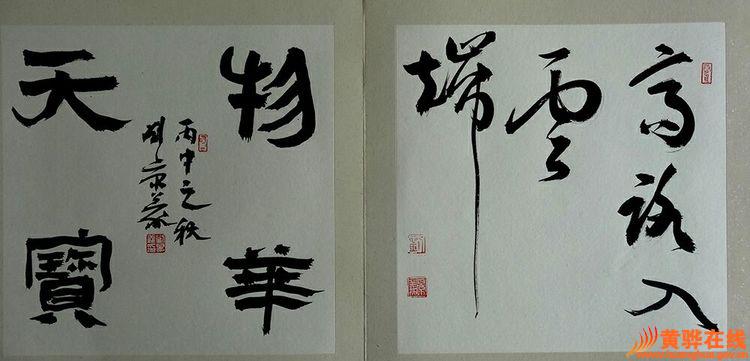 高路入
雲
端
物華
天寶
丙申之秋
黄骅在线